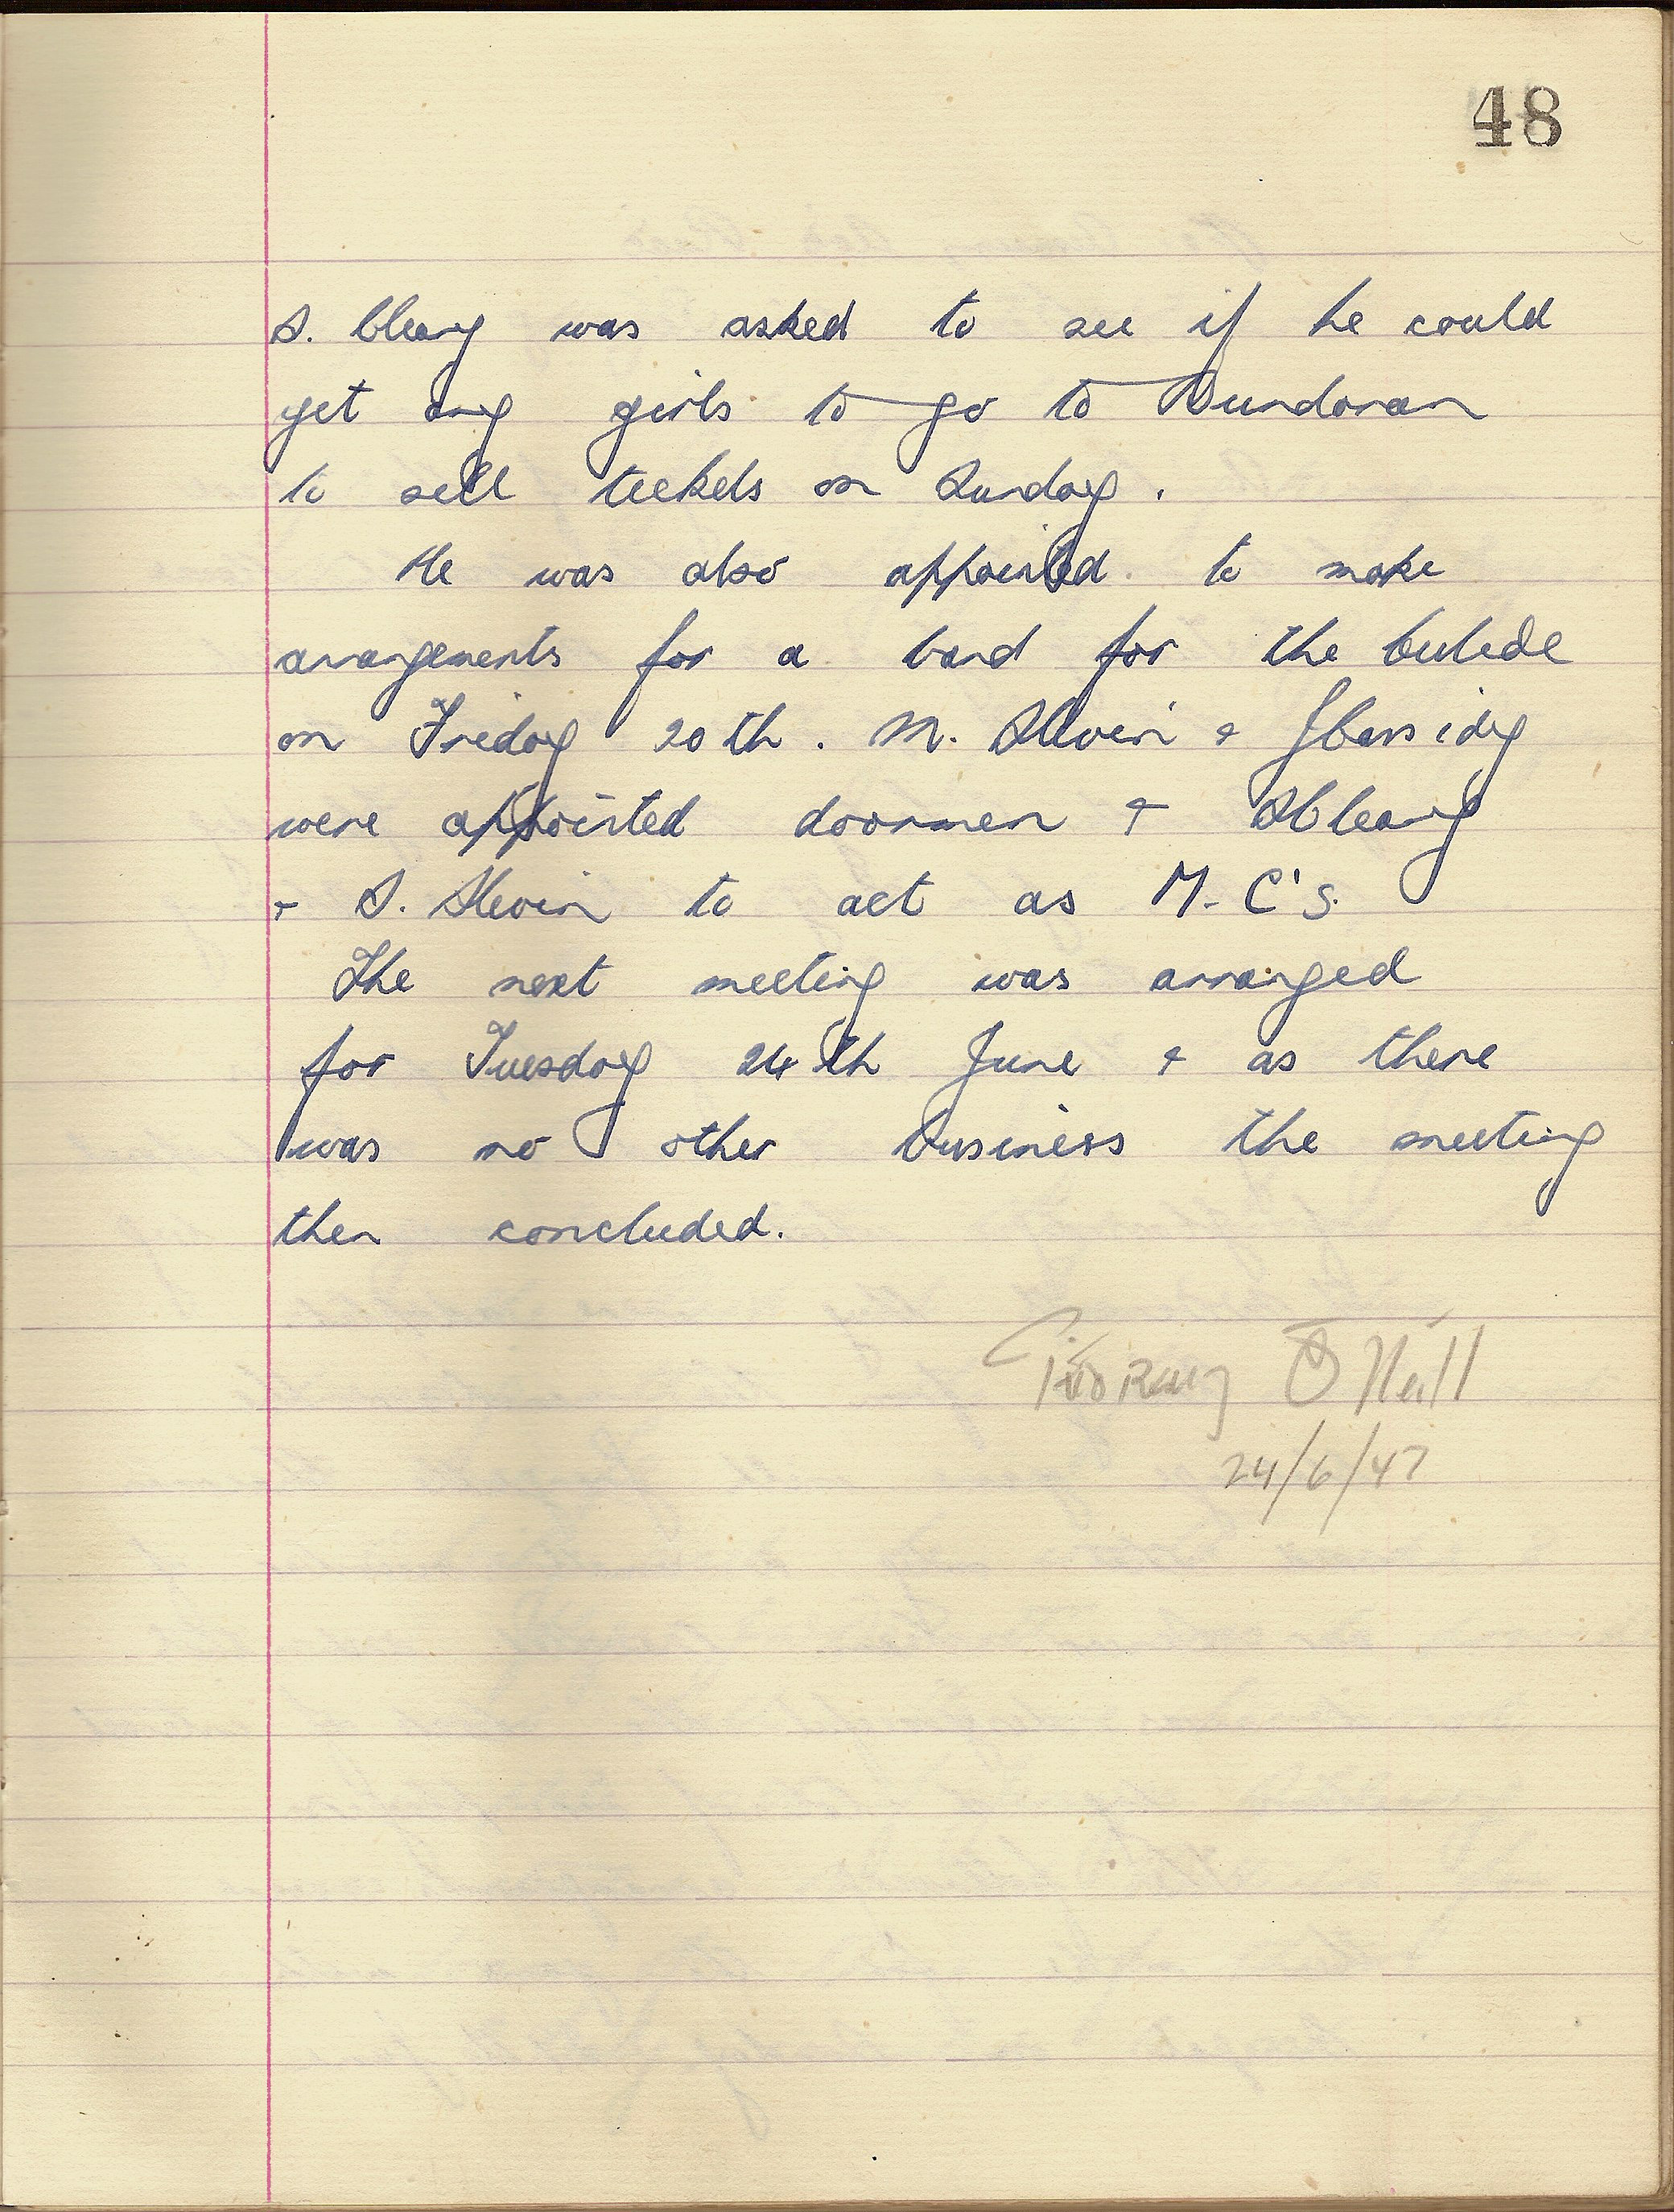 48
S. Cleary was asked to see if he could
get any girls to go to Bundoran
to sell tickets on Sunday.
He was also appointed to make
arrangements for a band for the
on Friday 20th. M. Slevin & J Cassidy
were appointed doormen & S Cleary
& S. Slevin to act as M.C's.
The next meeting was arranged
for Tuesday 24th June & as there
was no other business the meeting
then concluded.
O Neill
24/6/47